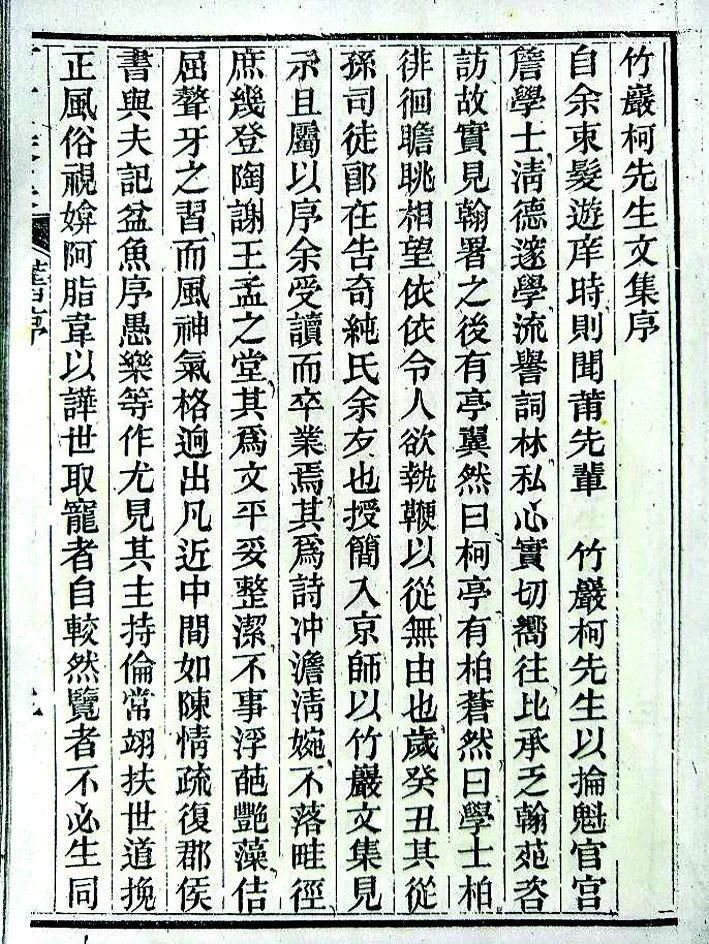 竹巖柯先生文集序
自余束髮遊庠時則聞莆先輩 竹巖柯先生以掄魁官宮
詹學士淸德邃學流譽詞林私心實切嚮往比承乏翰苑咨
訪故實見翰署之後有亭翼然曰柯亭有柏蒼然曰學士柏
徘徊瞻眺相望依依令人欲執鞭以從無由也歲癸丑其從
孫司徒郎在告奇純氏余友也授簡入京師以竹巖文集見
示且屬以序余受讀而卒業焉其爲詩冲澹淸婉不落畦徑
庶幾登陶謝王孟之堂其爲文平妥整潔不事浮葩艷藻佶
屈聱牙之習而風神氣格逈出凡近中間如陳情疏復郡侯
書與夫記盆魚序愚樂等作尤見其主持倫常翊扶世道挽
正風俗視媕阿脂韋以譁世取寵者自較然覽者不必生同
舊序